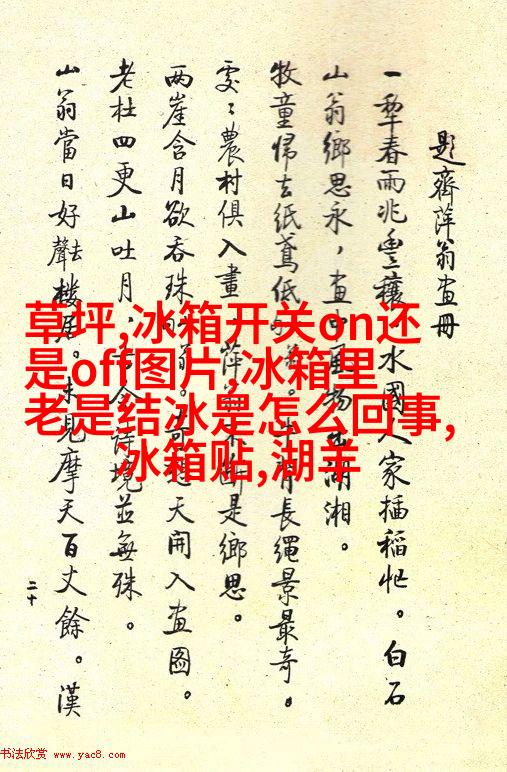 題齊萍翁畫冊
一犁春雨兆豐穰,水國人家插稻忙。白石
山翁鄉思永,畫中風物湖湘。
牧童歸去紙鳶低。牛背長繩景最奇。
處〻農村俱入畫,萍是鄉思。
兩崖含月欲吞珠天開入畫圖。
老杜四更山吐月,古今詩境並無殊。
山翁當日好去聲樓居。未見摩天百丈餘。漢
二十
草坪,冰箱开关on还
是off图片,冰箱里
老是结冰是怎么回事,
冰箱贴,湖羊
书法欣赏 www.yac8.com